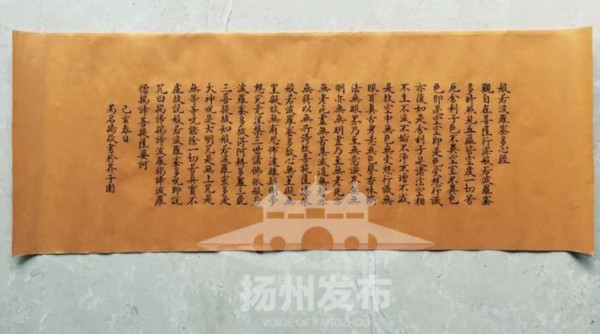 般若波羅蜜多心經
觀自在菩薩行深般若波羅蜜
多時照見五蘊皆空度一切苦
厄舍利子色不異空空不異色
色即是空空即是色受想行識
亦復如是舍利子是諸法空相
不生不滅不垢不淨不增不減
是故空中無色無受想行識無
眼耳鼻舌身意無色聲香味觸
法無眼界乃至無意識界無無
明亦無無明盡乃至無老死亦
無老死盡無苦集滅道無智亦
無得以無所得故菩提薩埵依
般若波羅蜜多故心無罣礙無
罣礙故無有恐怖遠離顛倒夢
想究竟涅槃三世諸佛依般若
波羅蜜多故得阿耨多羅三藐
三菩提故知般若波羅蜜多是
大神咒是大明咒是無上咒是
無等等咒能除一切苦真實不
虛故說般若波羅蜜多咒即說
咒曰揭諦揭諦波羅揭諦波羅
僧揭諦菩提薩婆訶
己亥春日
敬書於芥子園
扬州发布
VOICE OF YANGZHOU